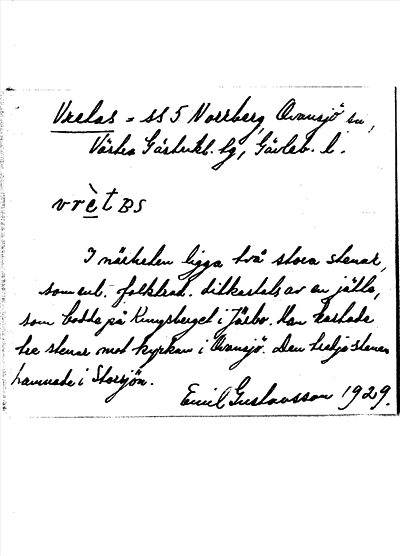 Vretas = ss 5 Norrberg, Ovansjö sn,
Västra Gästrikl. tg, Gävleb. l.
vrèt BS
I närheten ligga två stora stenar,
som enl. folktrad. ditkastats av en jätte,
som bodde på Kungsberget i Järbo. Han kastade
tre stenar mot kyrkan i Ovansjö. Den tredje stenen
hamnade i Storsjön.
Emil Gustavsson 1929.